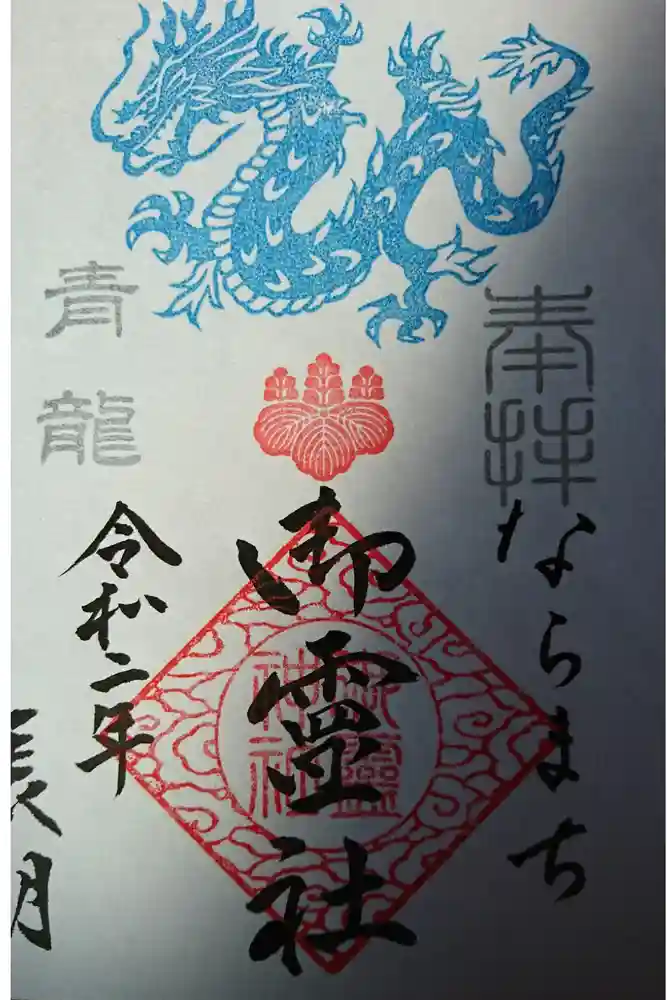 奉拝
ならまち
御霊社
御靈
神社
青龍
令和二年
長月